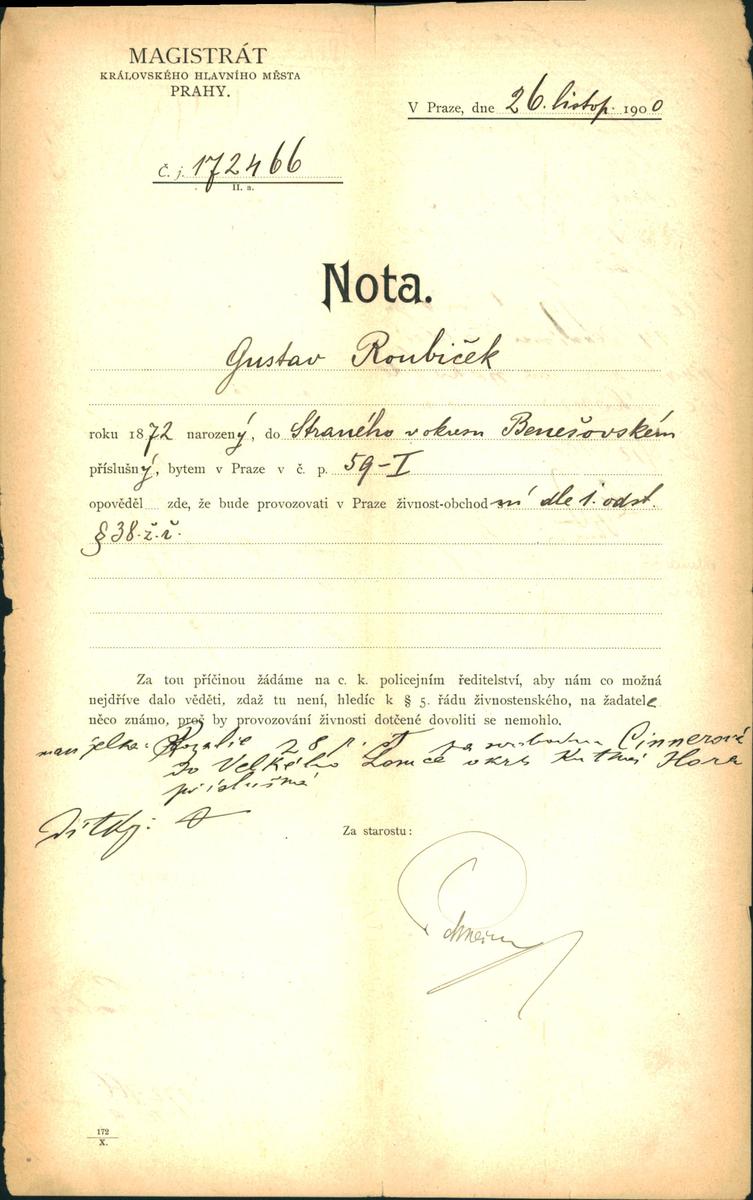 MAGISTRÁT
KRÁLOVSKÉHO HLAVNÍHO MĚSTA
PRAHY.
V Praze, dne 26. listop. 1900
Č. j. 172466
II. a.
Nota.
Gustav Roubiček
roku 1872 narozený, do Straného v okresu Benešovském
příslušný, bytem v Praze v č. p. 59-I
opověděl zde, že bude provozovati v Praze živnost-obchodní dle 1. odst.
§ 38. ž. ř.
Za tou příčinou žádáme na c. k. policejním ředitelství, aby nám co možná
nejdříve dalo věděti, zdaž tu není, hledíc k § 5. řádu živnostenského, na žadatele
něco známo, proč by provozování živnosti dotčené dovoliti se nemohlo.
manželka: Rozalie 28 r. st za svobodna Cinnerová
do Velkého okrs Kutná Hora
příslušná
Dítky:
Za starostu:
172
X.